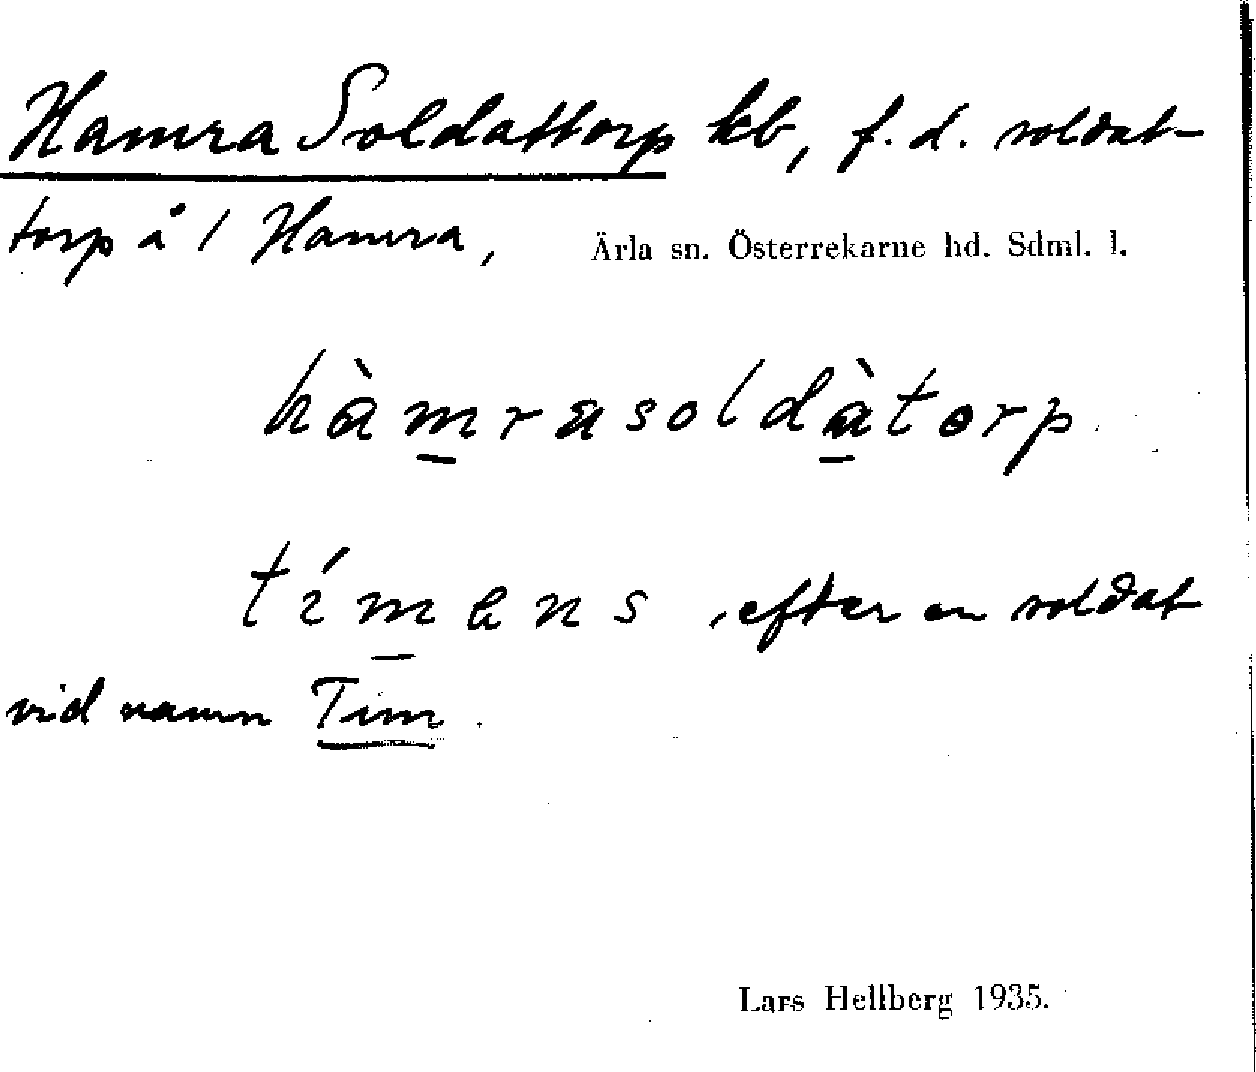 Hamra Soldattorp kb, f.d. soldat-
torp å 1 Hamra, Ärla sn. Österrekarne hd. Sdml. l.
hàmrasoldàtorp.
tímans, efter en soldat
vid namn Tim.
Lars Hellberg 1935.